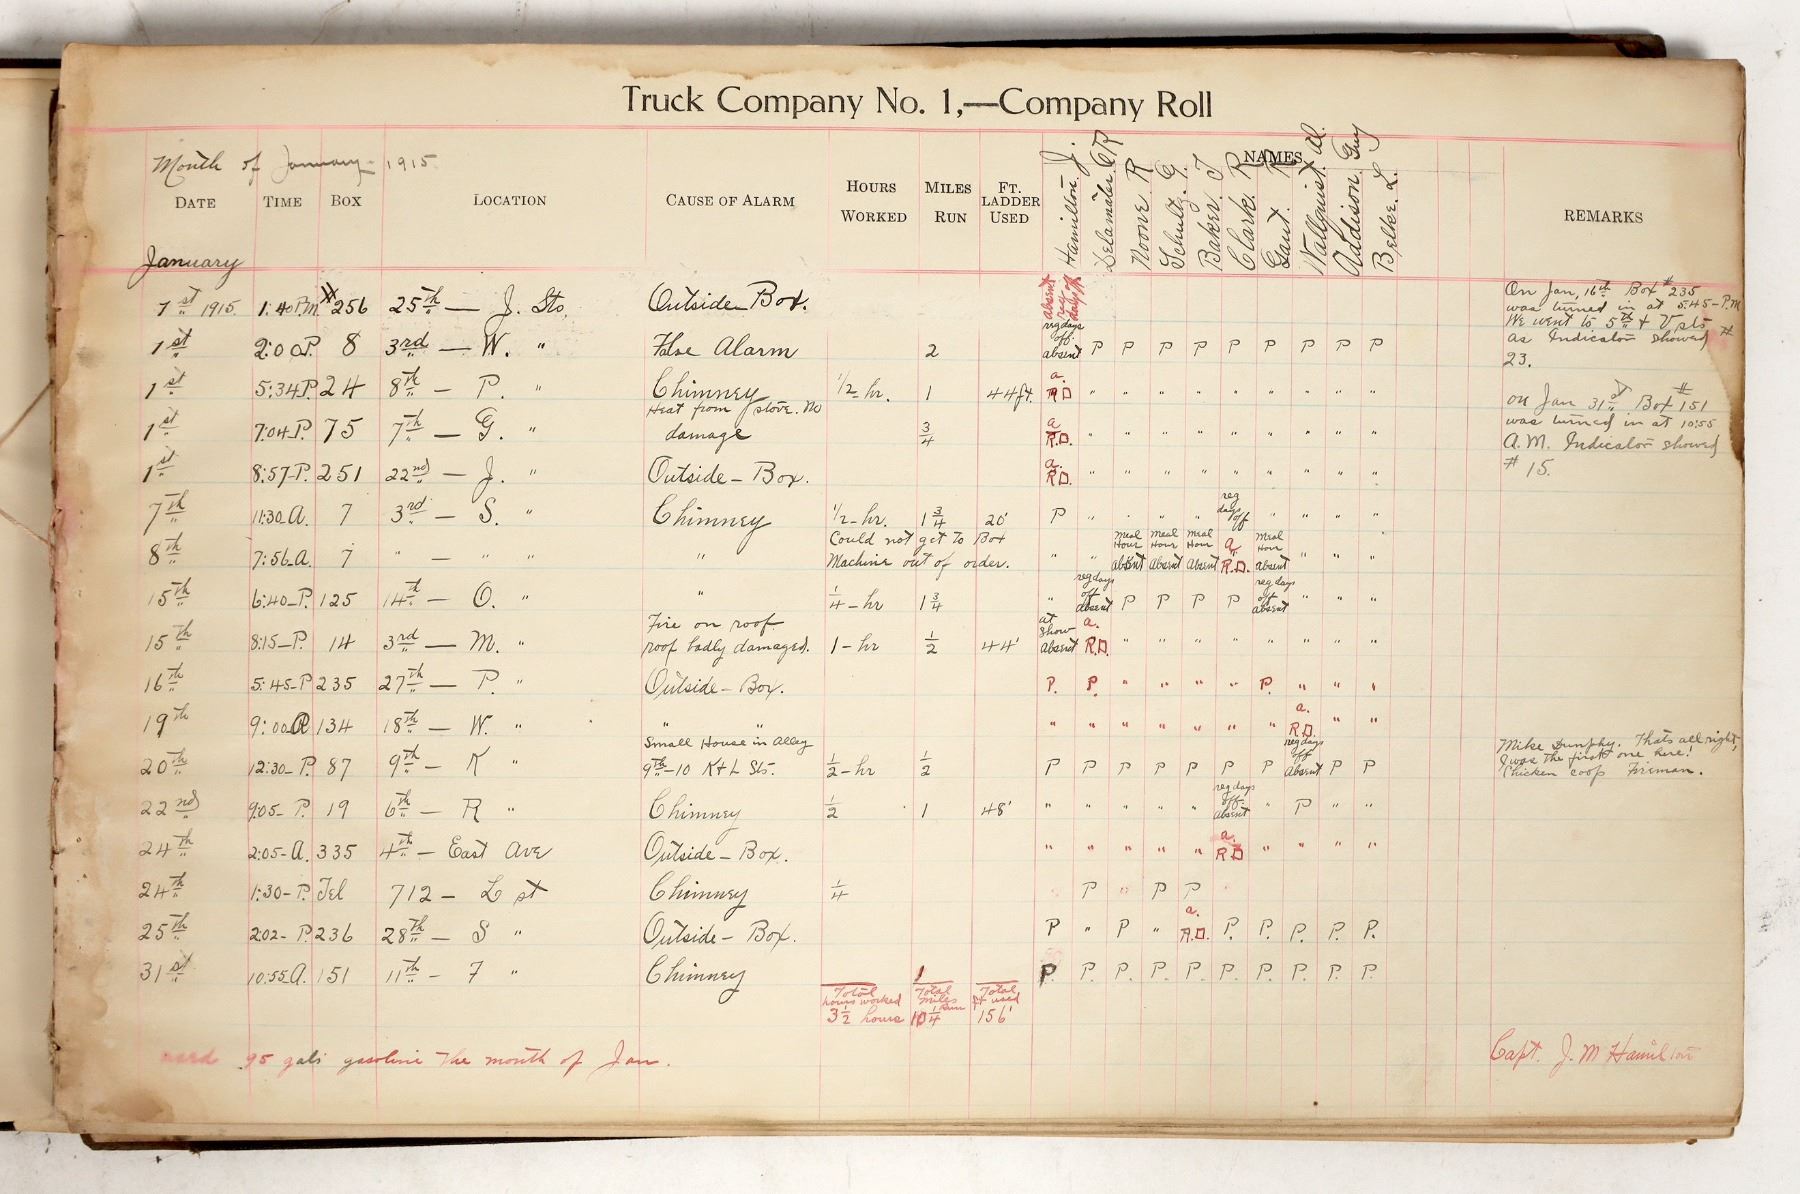 Truck Company No. 1,—Company Roll
Month of January – 1915.
NAMES
DATE TIME BOX LOCATION CAUSE OF ALARM HOURS WORKED MILES RUN FT. LADDER USED Hamilton. J. Delamater. CR Noone R Schultz. G. Baker. J Clark. R Gaut. R Wallquist. Al. Addison. Guy Belke. L. REMARKS
January
1st 1915. 1:40 P.M #256 25th — J. Sts. Outside Box. absent reg days off
1st 2:00 P. 8 3rd — W. " False Alarm 2 reg days off. absent P P P P P P P P P
1st 5:34 P. 24 8th — P. " Chimney 1/2 hr. 1 44 ft. a. R D " " " " " " " " "
1st 7:04 P. 75 7th — G. " Heat from stove. No damage 3/4 a R.D. " " " " " " " " "
1st 8:57 P. 251 22nd — J. " Outside – Box. a. R.D. " " " " " " " " "
7th 11:30 A. 7 3rd — S. " Chimney 1/2 – hr. 1 3/4 20' P " " " " reg days off " " " "
8th 7:56 A. 7 " — " " " Could not get to Box Machine out of order. " " meal Hour absent meal Hour absent meal Hour absent a R.D. meal Hour absent " " "
15th 6:40 – P. 125 14th — O. " " 1/4 – hr 1 3/4 " reg days off absent P P P P reg days off absent " " "
15th 8:15 – P. 14 3rd — M. " Fire on roof roof badly damaged. 1 – hr 1/2 44' at show absent a. R.D. " " " " " " " "
16th 5:45 – P 235 27th — P. " Outside – Box. P. P. " " " " P. " " "
19th 9:00 A 134 18th — W. " " " " " " " " " " a. R.D. " "
20th 12:30 – P. 87 9th — K " Small House in Alley 9th – 10 K + L Sts. 1/2 – hr 1/2 P P P P P P P reg days off absent P P
22nd 9:05 – P. 19 6th — R " Chimney 1/2 1 48' " " " " " reg days off. absent " P " "
24th 2:05 – A. 335 4th — East Ave Outside – Box. " " " " " a. R D " " " "
24th 1:30 – P. Tel 712 – L st Chimney 1/4 P " P P
25th 2:02 – P. 236 28th — S " Outside – Box. P " P " a. R.D. P. P. P. P. P.
31st 10:55 A. 151 11th – F " Chimney 1 P. P. P. P. P. P. P. P. P. P.
Total hours worked 3 1/2 hours Total miles run 10 1/4 Total ft used 156'
used 95 gals gasoline the month of Jan.
On Jan, 16th Box # 235
was turned in at 5:45 – P.M
We went to 5th + V sts
as Indicator showed #
23.
on Jan 31st Box # 151
was turned in at 10:55
A.M. Indicator showed
# 15.
Mike Dunphy. Thats all right,
I was the first one here!
Chicken coop Fireman.
Capt. J. M Hamilton